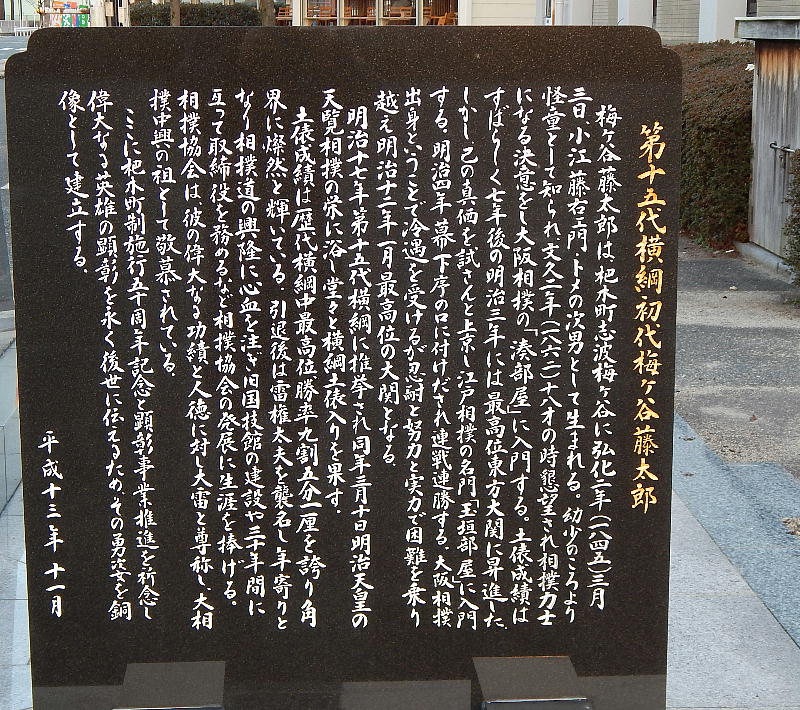 第十五代横綱・初代梅ヶ谷藤太郎
梅ヶ谷藤太郎は、杷木町志波梅ヶ谷に弘化二年(一八四五)三月
三日小江藤右ェ門、トメの次男として生まれる。幼少のころより
怪童として知られ、文久二年(一八六二)十八才の時懇望され相撲力士
になる決意をし大阪相撲の「湊部屋」に入門する。土俵成績は
すばらしく七年後の明治三年には最高位東方大関に昇進した。
しかし己の真価を試さんと上京し江戸相撲の名門「玉垣部屋」に入門
する。明治四年、幕下序の口に付けだされ連戦連勝する。大阪相撲
出身ということで冷遇を受けるが忍耐と努力と実力で困難を乗り
越え明治十二年一月最高位の大関となる。
明治十七年第十五代横綱に推挙され同年三月十日明治天皇の
天覧相撲の栄に浴し堂々と横綱土俵入りを果す。
土俵成績は歴代横綱中最高位勝率九割五分一厘を誇り角
界に燦然と輝いている。引退後は雷権太夫を襲名し年寄りと
なり相撲道の興隆に心血を注ぎ旧国技館の建設や三十年間に
亙って取締役を務めるなど相撲協会の発展に生涯を捧げる。
相撲協会は、彼の偉大なる功績と人徳に対し大雷と尊称し大相
撲中興の祖として敬慕されている。
ここに杷木町制施行五十周年記念と顕彰事業推進を祈念し
偉大なる英雄の顕彰を永く後世に伝えるため、その勇姿を銅
像として建立する。
平成十三年十一月